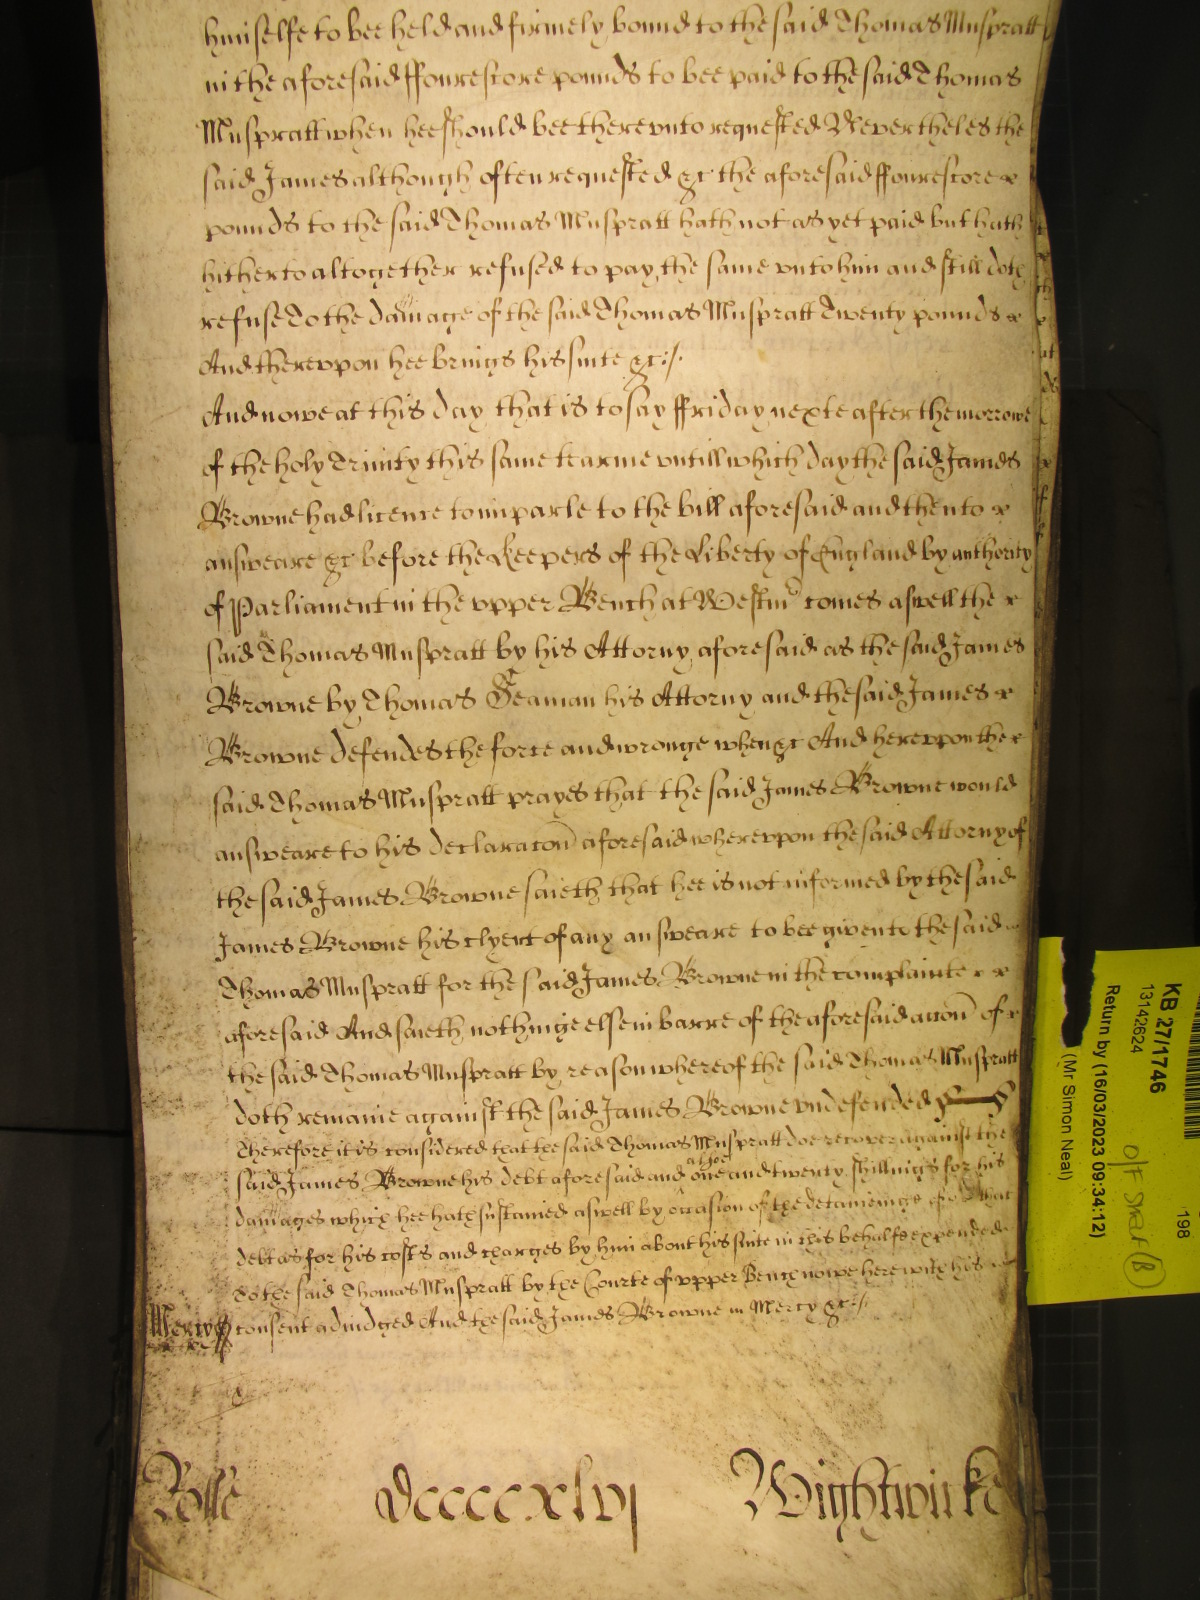 himselfe to bee held and firmely bound to the said Thomas Muspratt
in the aforesaid ffourescore pounds to bee paid to the said Thomas
Muspratt when hee should bee therevnto requested Nevertheles the
said James although often requested &c the aforesaid ffourescore
pounds to the said Thomas Muspratt hath not as yet paid but hath
hitherto altogether refused to pay the same vnto him and still doth
refuse To the damage of the said Thomas Muspratt Twenty pounds
And therevpon hee brings his suite &c:/.
And nowe at this day that is to say ffriday nexte after the morrowe
of the holy Trinity this same tearme vntill which day the said James
Browne had licence to imparle to the bill aforesaid and then to
answeare &c before the Keepers of the Liberty of England by authority
of Parliament in the vpper Bench at Westmr comes aswell the
said Thomas Muspratt by his Attorny aforesaid as the said James
Browne by Thomas Geaman his Attorny and the said James
Browne defendes the force and wronge when &c And herevpon the
said Thomas Muspratt prayes that the said James Browne would
answeare to his declaracon aforesaid wherevpon the said Attorny of
the said James Browne saieth that hee is not informed by the said
James Browne his clyent of any answeare to bee given to the said
Thomas Muspratt for the said James Browne in the complainte
aforesaid And saieth nothinge else in barre of the aforesaid accon of
the said Thomas Muspratt by reason whereof the said Thomas Muspratt
doth remaine against the said James Browne vndefended
Therefore it is considered that the said Thomas Muspratt doe recover against the
said James Browne his debt aforesaid and alsoe one and twenty shillings for his
damages which hee hath sustained aswell by occasion of the detaineinge of that
debt as for his costs and charges by him about his suite in this behalfe expended
To the said Thomas Muspratt by the Courte of vpper Bench nowe here with his
Mercy consent adiudged And the said James Browne in Mercy &c:/.
Rolle dccccxlvj Wightwicke
KB 27/1746
198
13142624
Return by (16/03/2023 09:34:12)
(Mr Simon Neal)